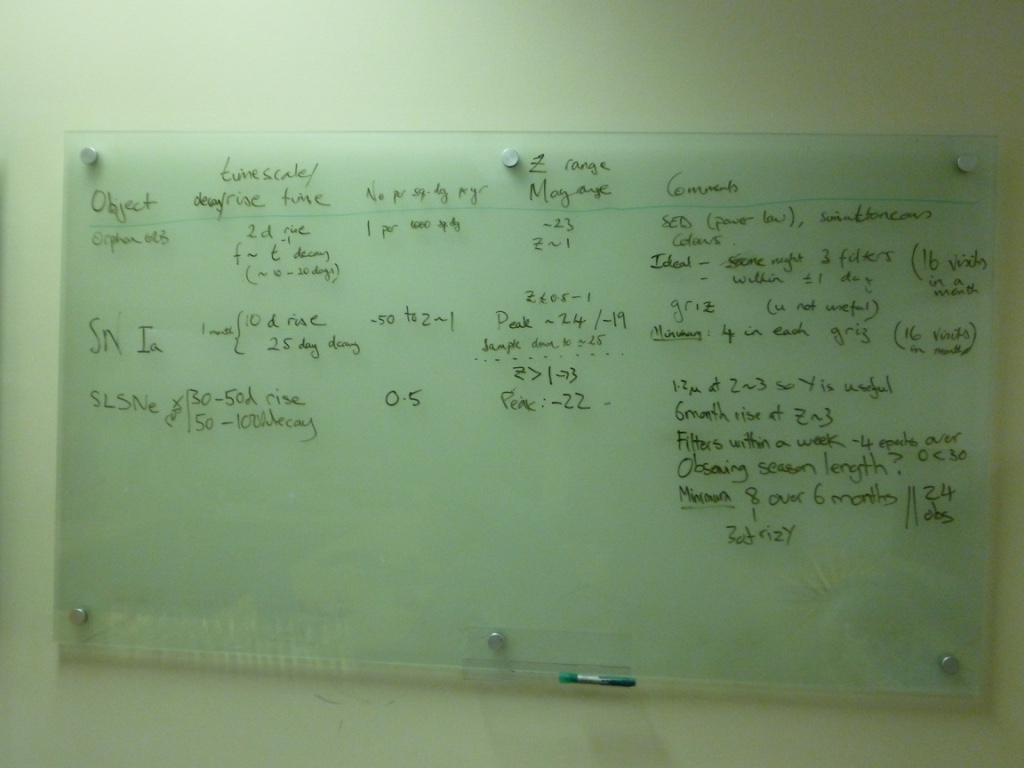 Object
timescale/
decay/rise time
No per sq. dg per yr
Z range
Mag range
Comments
Orphan GRB
2 d rise
f ~ t⁻¹ decay
(~10-20 days)
1 per 1000 sq dg
~23
Z~1
SED (power law), simultaneous
colours.
Ideal - same night 3 filters
- within ±1 day
(16 visits
in a
month
SN Ia
1 month
10 d rise
25 day decay
~50 to z~1
Z ≤ 0.5-1
Peak ~24/-19
Sample down to ≈25
griz (u not useful)
Minimum: 4 in each griz
(16 visits)
in month
SLSNe
30-50d rise
50-100d decay
0.5
Z>1→3
Peak: -22 -
1.2μ at z~3 so Y is useful
6month rise at z~3
Filters within a week -4 epochs over
0<30
Observing season length?
Minimum 8 over 6 months
24
obs
3 of rizY